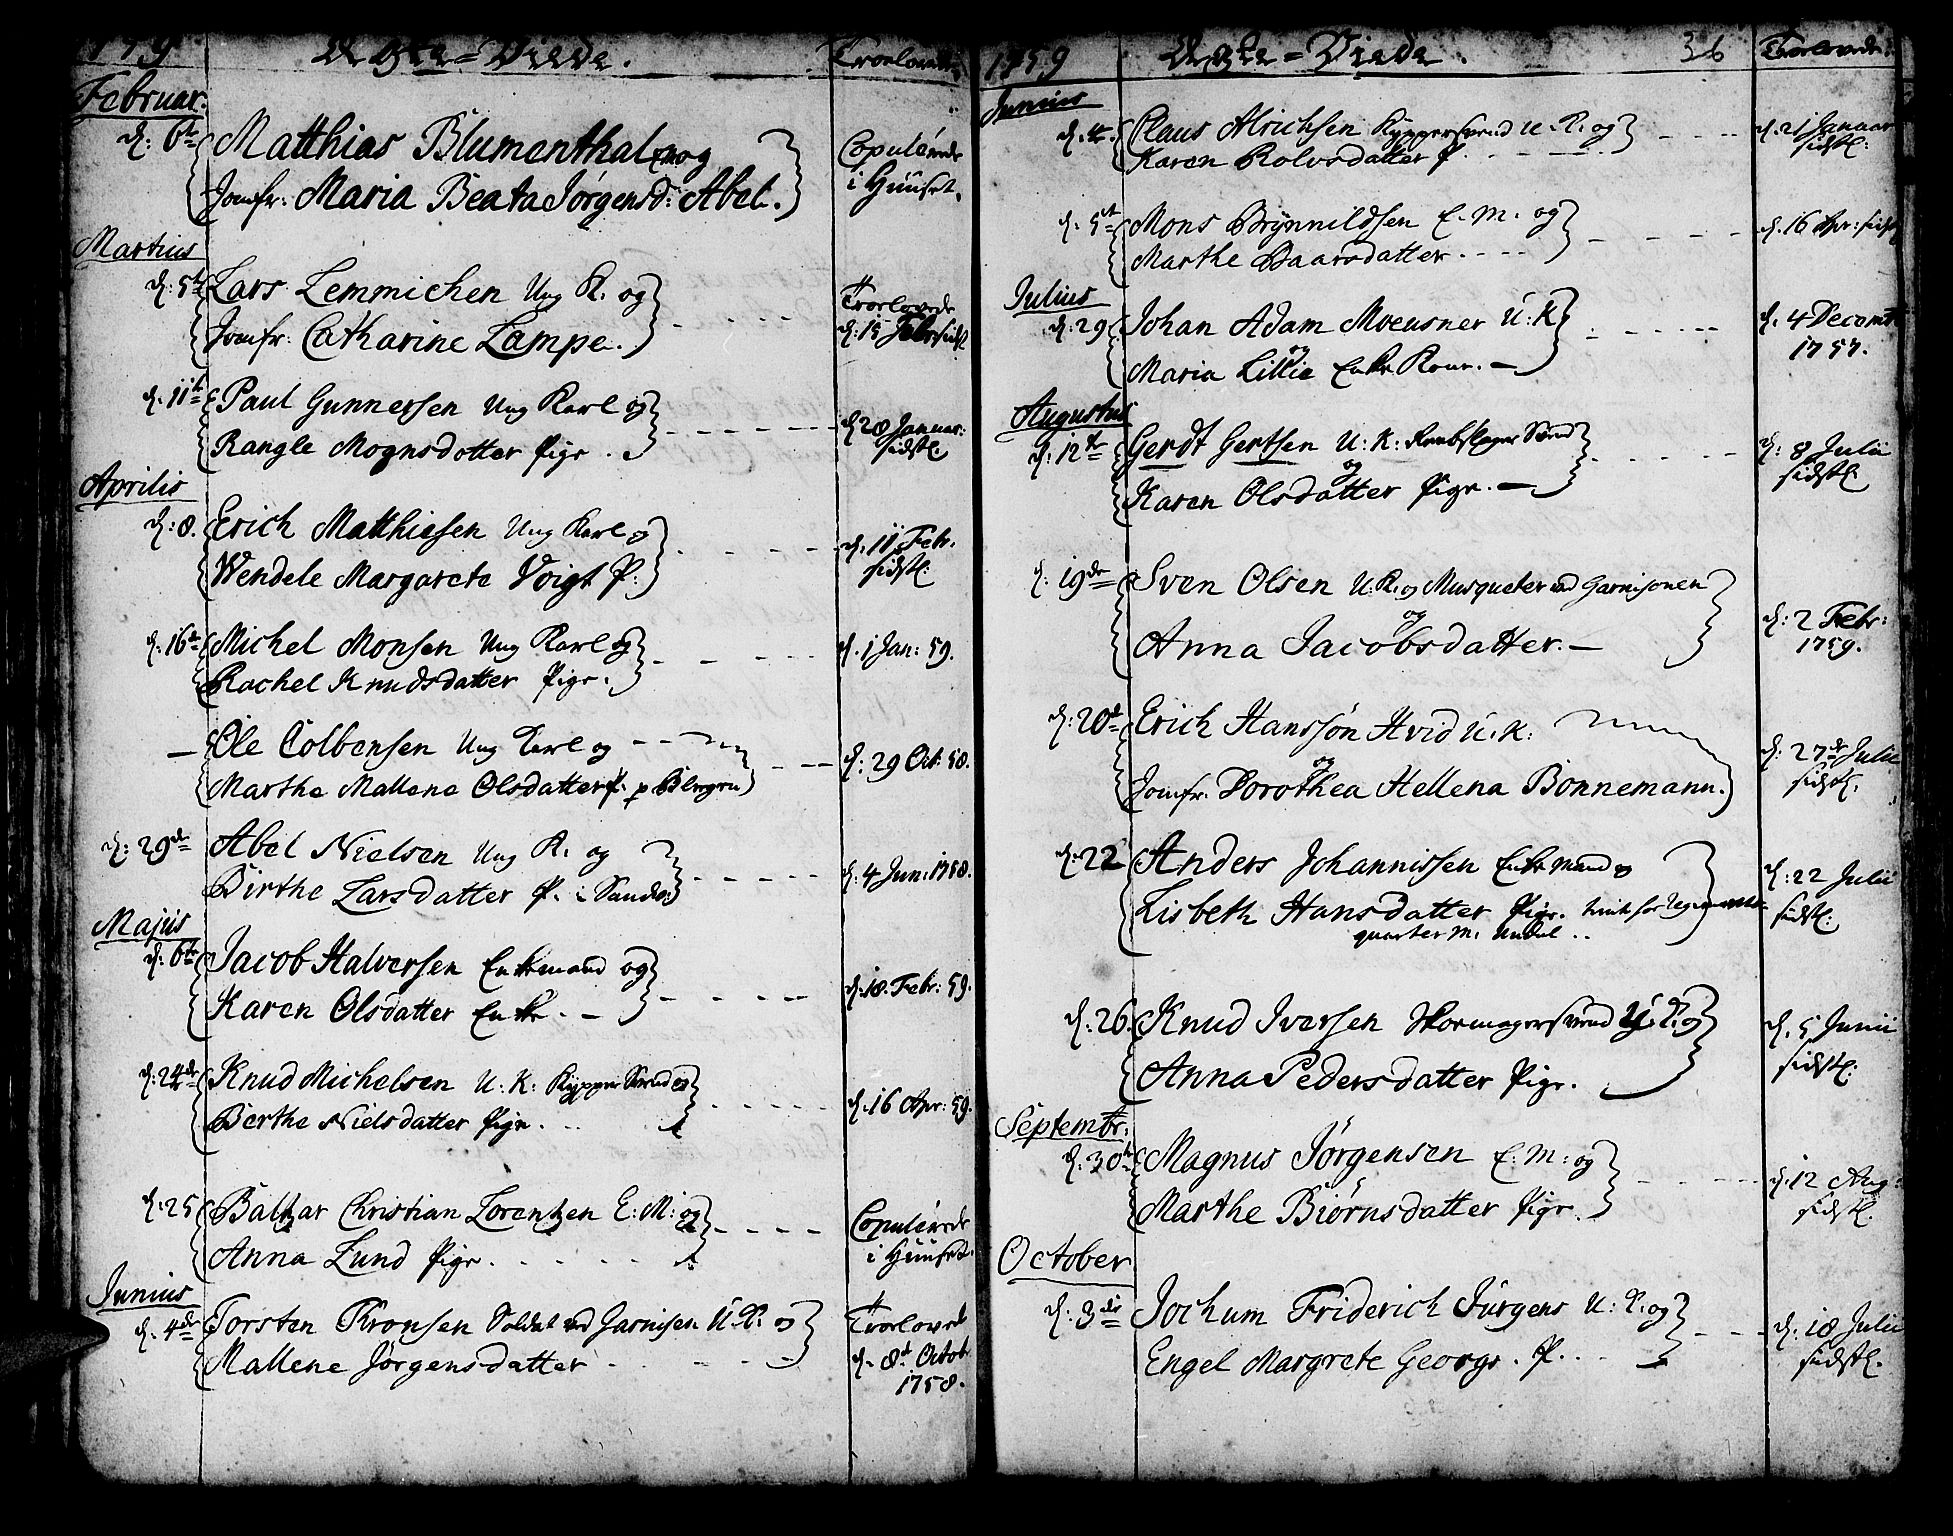 1759 Ægte-Viede. Troelovede
Februar.
d: 6te Matthias Blumenthal og
Jomfr: Maria Beata Jörgensd: Abel.
Copuleerede
i Huuset.
Martius
d: 5te Lars Lemmichen Ung K. og
Jomfr: Catharine Lampe.
Troelovede
d: 15 Febr: sidstl
d. 11te Paul Gunnersen Ung Karl og
Rangle Mognsdotter Pige.
d 28 Januar:
sidstl:
Aprilis
d: 8. Erich Matthiesen Ung Karl og
Wendele Margarete Voigt P:
d. 11 Febr.
sidstl:
d. 16te Michel Monsen Ung Karl og
Rachel Knudsdatter Pige.
d. 1 Jan: 59.
Ole Colbensen Ung Karl og
Marthe Mallene Olsdatter P.
d: 29 Oct: 58.
d: 29de Abel Nielsen Ung K. og
Birthe Larsdatter P. i Sandv:
d: 4 Jun: 1758.
Majus
d: 6te Jacob Halversen Enkemand og
Karen Olsdatter Enke.
d. 18. Febr: 59.
d: 24de Knud Michelsen U: K: Kypper Svend og
Berthe Nielsdatter Pige.
d. 16 Apr: 59.
d: 25 Baltzar Christian Lorentzen E: M: og
Anna Lund Pige.
Copuleerede
i Huuset.
Junius
d. 4de Torsten Kronsen Soldat ved Garnisen U: K: og
Mallene Jörgensdatter
Troelovede
d. 8de Octob
1758.
1759 Ægte-Viede. 36 Troelovede
Junius
d. 4. Claus Alrichsen Kyppersvend U. K. og
Karen Rolvsdatter P.
d. 21 Januar
sidstl:
d: 5te Mons Brynnildsen E. M. og
Marthe Baarsdatter
d. 16 Apr: sidstl
Julius
d: 29 Johan Adam Moeusner U: K
og
Maria Lillie Enke Kone.
d. 4 Decemb
1757.
Augustus
d: 12te Gerdt Gertsen U: K: Reebslager Svend
og
Karen Olsdatter Pige.
d: 8 Julii
sidstl:
d: 19de Sven Olsen U: K: og Musqueter ved Garnisonen
og
Anna Jacobsdatter.
d: 2 Febr:
1759.
d: 20de Erich Hanssön Hvid U. K:
og
Jomfr. Dorothea Hellena Bonnemann.
d: 27de Julii
sidstl.
d: 22 Anders Johannissen Enke mand og
Lisbeth Hansdatter Pige.
quarter M.
d: 22 Julii
sidstl:
d. 26. Knud Iversen Skomagersvend U. K. og
Anna Pedersdatter Pige.
d. 5 Junii
sidstl:
Septembr:
d. 30te Magnus Jörgensen E: M: og
Marthe Biörnsdatter Pige.
d. 12 Aug:
sidstl.
October
d: 3die Jochum Friderich Jürgens U: K. og
Engel Margrete Georgs. P.
d. 18 Julii
sidstl.